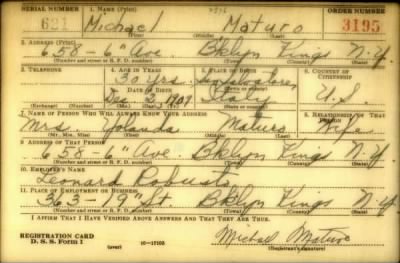 SERIAL NUMBER 1. NAME (Print) ORDER NUMBER
621 Michael Maturo 3195
2. ADDRESS (Print)
658 - 6" Ave. Bklyn Kings N.Y.
(Number and street or R. F. D. number) (Town) (County) (State)
3. TELEPHONE 4. AGE IN YEARS 5. PLACE OF BIRTH 6. COUNTRY OF CITIZENSHIP
30 yrs.
DATE OF BIRTH
Dec 2, 1909 Italy U.S.
(Exchange) (Number) (Mo.) (Day) (Yr.) (State or country)
7. NAME OF PERSON WHO WILL ALWAYS KNOW YOUR ADDRESS 8. RELATIONSHIP OF THAT PERSON
Mrs Yolanda Maturo Wife
(Mr., Mrs., Miss) (First) (Middle) (Last)
9. ADDRESS OF THAT PERSON
658 - 6" Ave. Bklyn Kings N.Y.
(Number and street or R. F. D. number) (Town) (County) (State)
10. EMPLOYER'S NAME
Leonard
11. PLACE OF EMPLOYMENT OR BUSINESS
363 - 19" St. Bklyn Kings N.Y.
(Number and street or R. F. D. number) (Town) (County) (State)
I AFFIRM THAT I HAVE VERIFIED ABOVE ANSWERS AND THAT THEY ARE TRUE.
REGISTRATION CARD
D. S. S. Form 1 (over) 16-17105 Michael Maturo
(Registrant's signature)